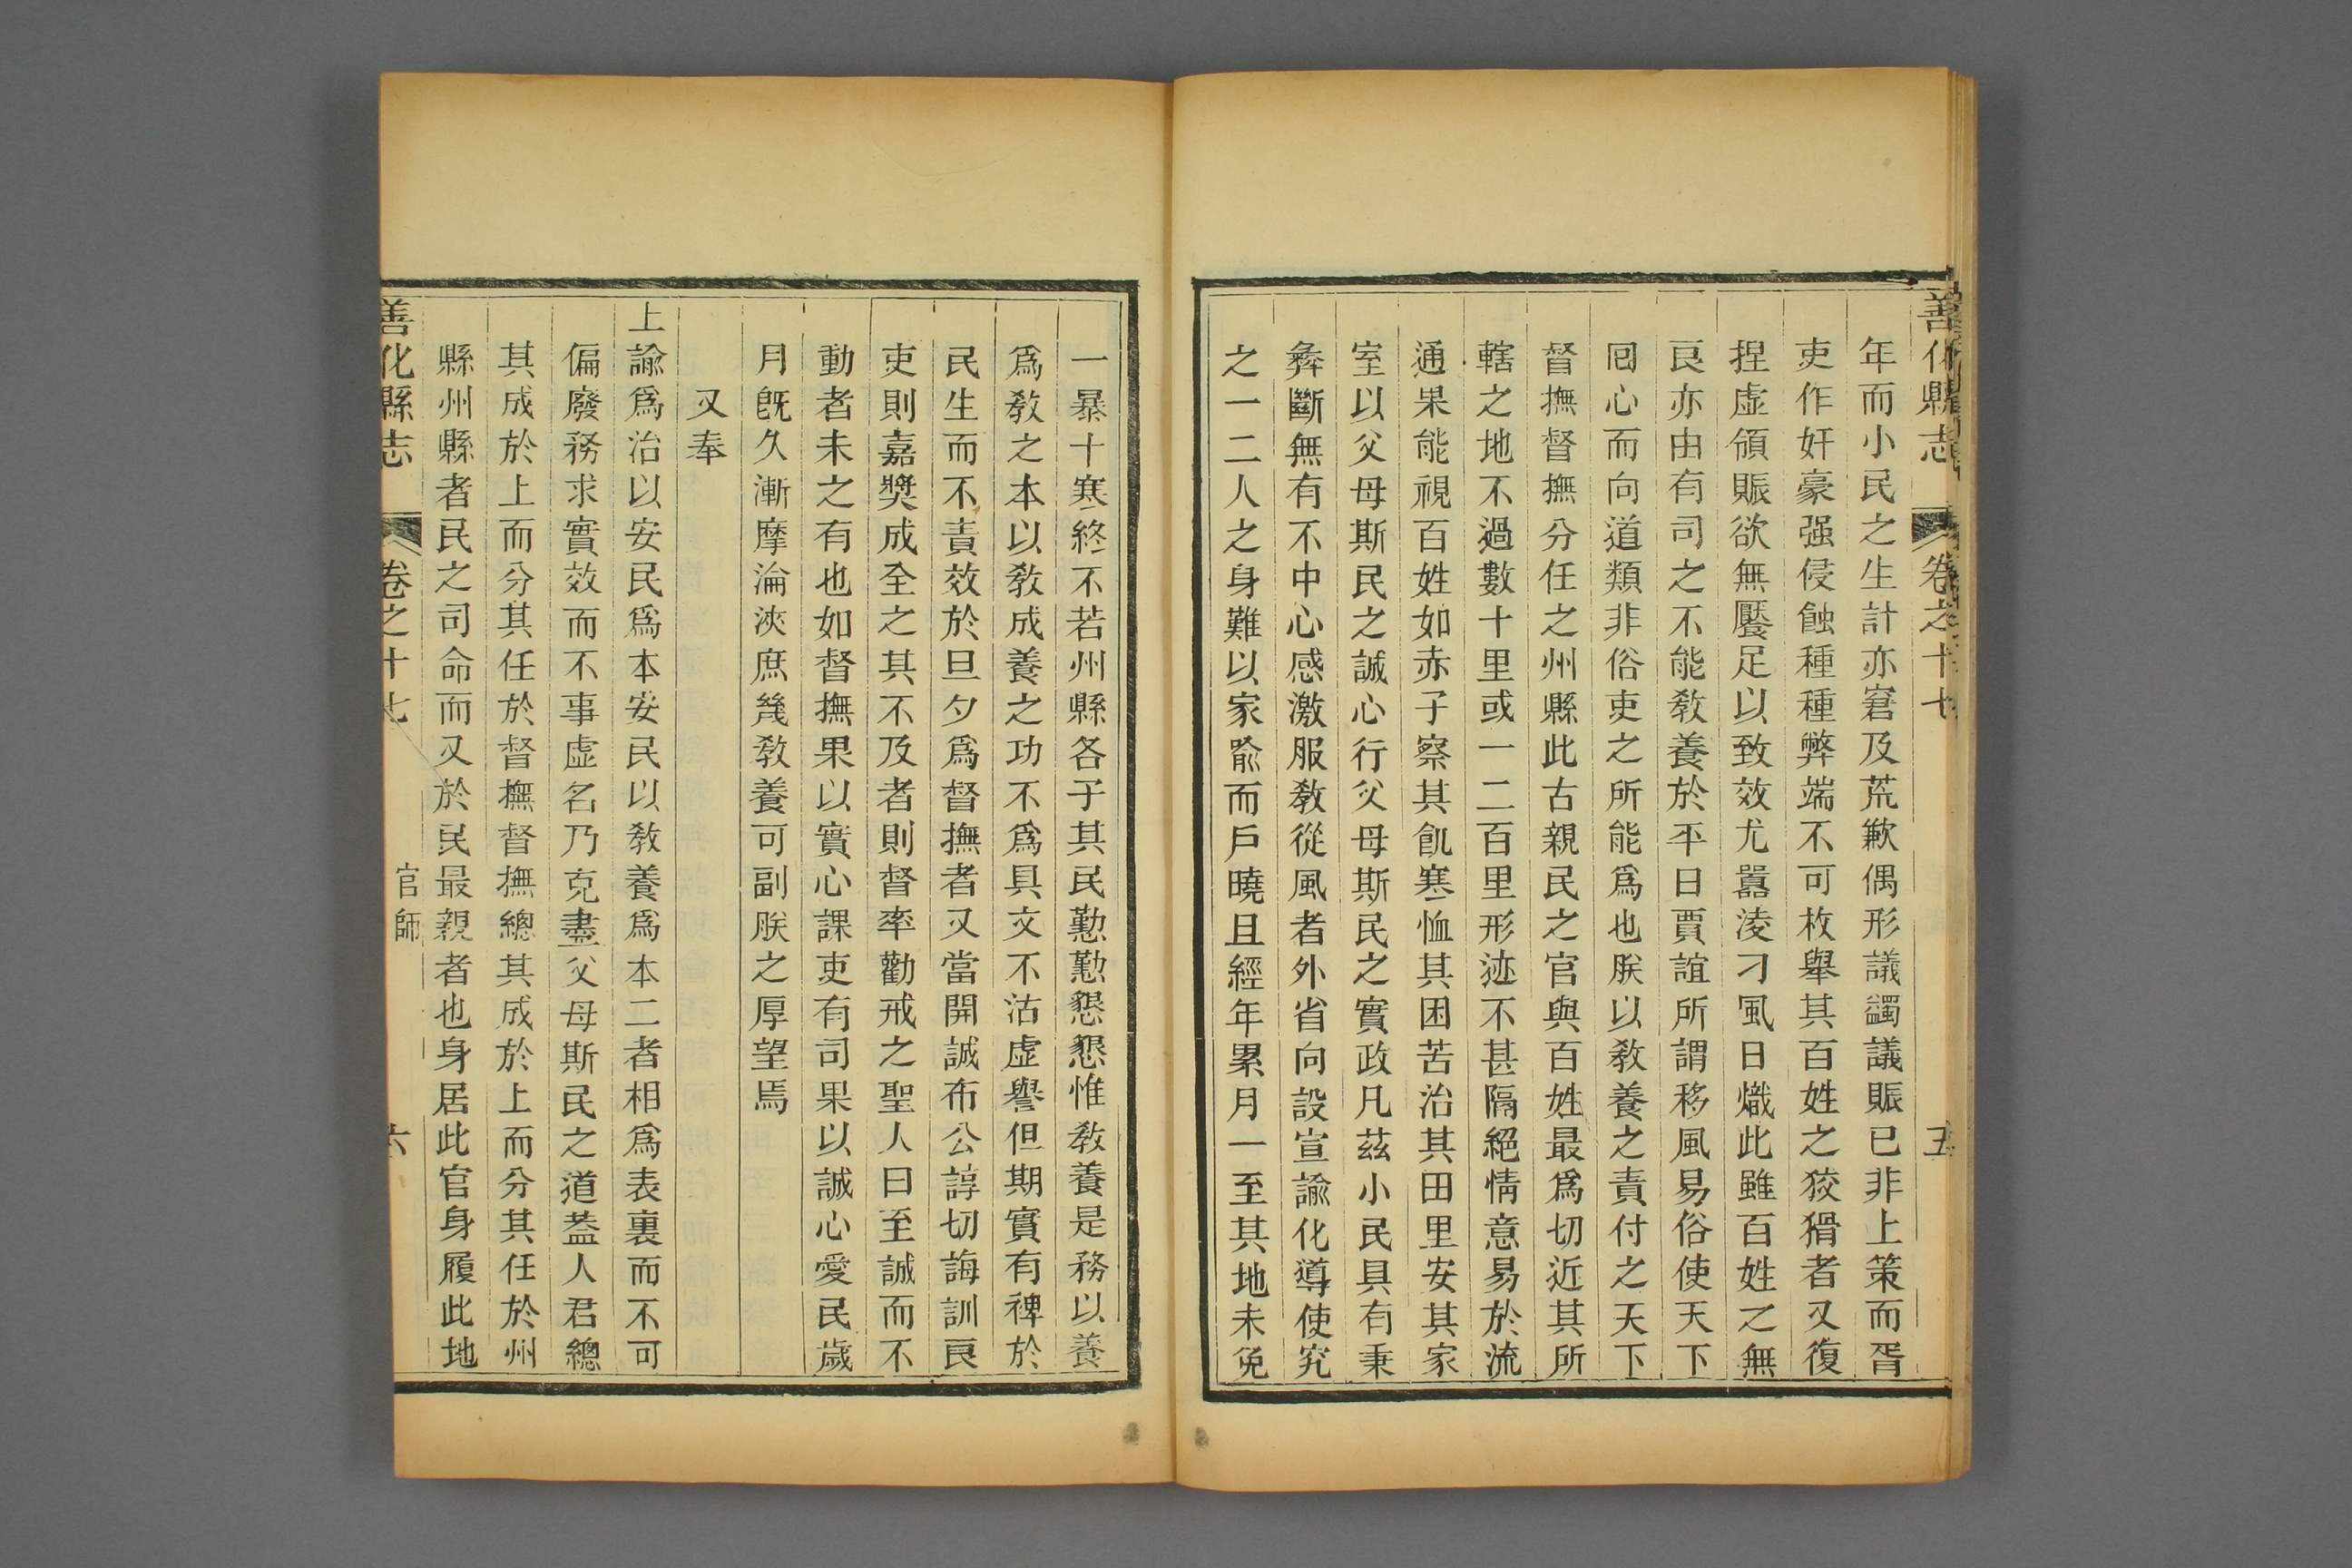 善化縣志 卷之十七 五
年而小民之生計亦窘及荒歉偶形議蠲議賑已非上策而胥
吏作奸豪强侵蝕種種弊端不可枚舉其百姓之狡猾者又復
捏虛領賑欲無饜足以致效尤囂淩刁風日熾此雖百姓之無
良亦由有司之不能敎養於平日賈誼所謂移風易俗使天下
囘心而向道類非俗吏之所能爲也朕以敎養之責付之天下
督撫督撫分任之州縣此古親民之官與百姓最爲切近其所
轄之地不過數十里或一二百里形迹不甚隔絕情意易於流
通果能視百姓如赤子察其飢寒恤其困苦治其田里安其家
室以父母斯民之誠心行父母斯民之實政凡茲小民具有秉
彝斷無有不中心感激服敎從風者外省向設宣諭化導使究
之一二人之身難以家喻而戶曉且經年累月一至其地未免
一暴十寒終不若州縣各子其民懃懃懇懇惟敎養是務以養
爲敎之本以敎成養之功不爲具文不沽虛譽但期實有裨於
民生而不責效於旦夕爲督撫者又當開誠布公諄切誨訓良
吏則嘉奬成全之其不及者則督率勸戒之聖人曰至誠而不
動者未之有也如督撫果以實心課吏有司果以誠心愛民歲
月旣久漸摩淪浹庶幾敎養可副朕之厚望焉
又奉
上諭爲治以安民爲本安民以敎養爲本二者相爲表裏而不可
偏廢務求實效而不事虛名乃克盡父母斯民之道蓋人君總
其成於上而分其任於督撫督撫總其成於上而分其任於州
縣州縣者民之司命而又於民最親者也身居此官身履此地
善化縣志 卷之十七 官師 六